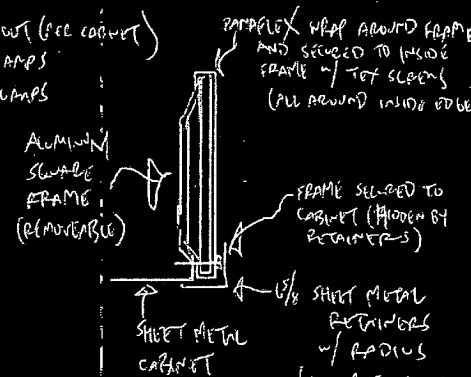 OUT (PER CABINET)
AMPS
LAMPS
PANAFLEX WRAP AROUND FRAME
AND SECURED TO INSIDE
FRAME W/ TEK SCREWS
(ALL AROUND INSIDE EDGE
ALUMINUM
SQUARE
FRAME
(REMOVEABLE)
FRAME SECURED TO
CABINET (HIDDEN BY
RETAINERS)
SHEET METAL
RETAINERS
W/ RADIUS
SHEET METAL
CABINET